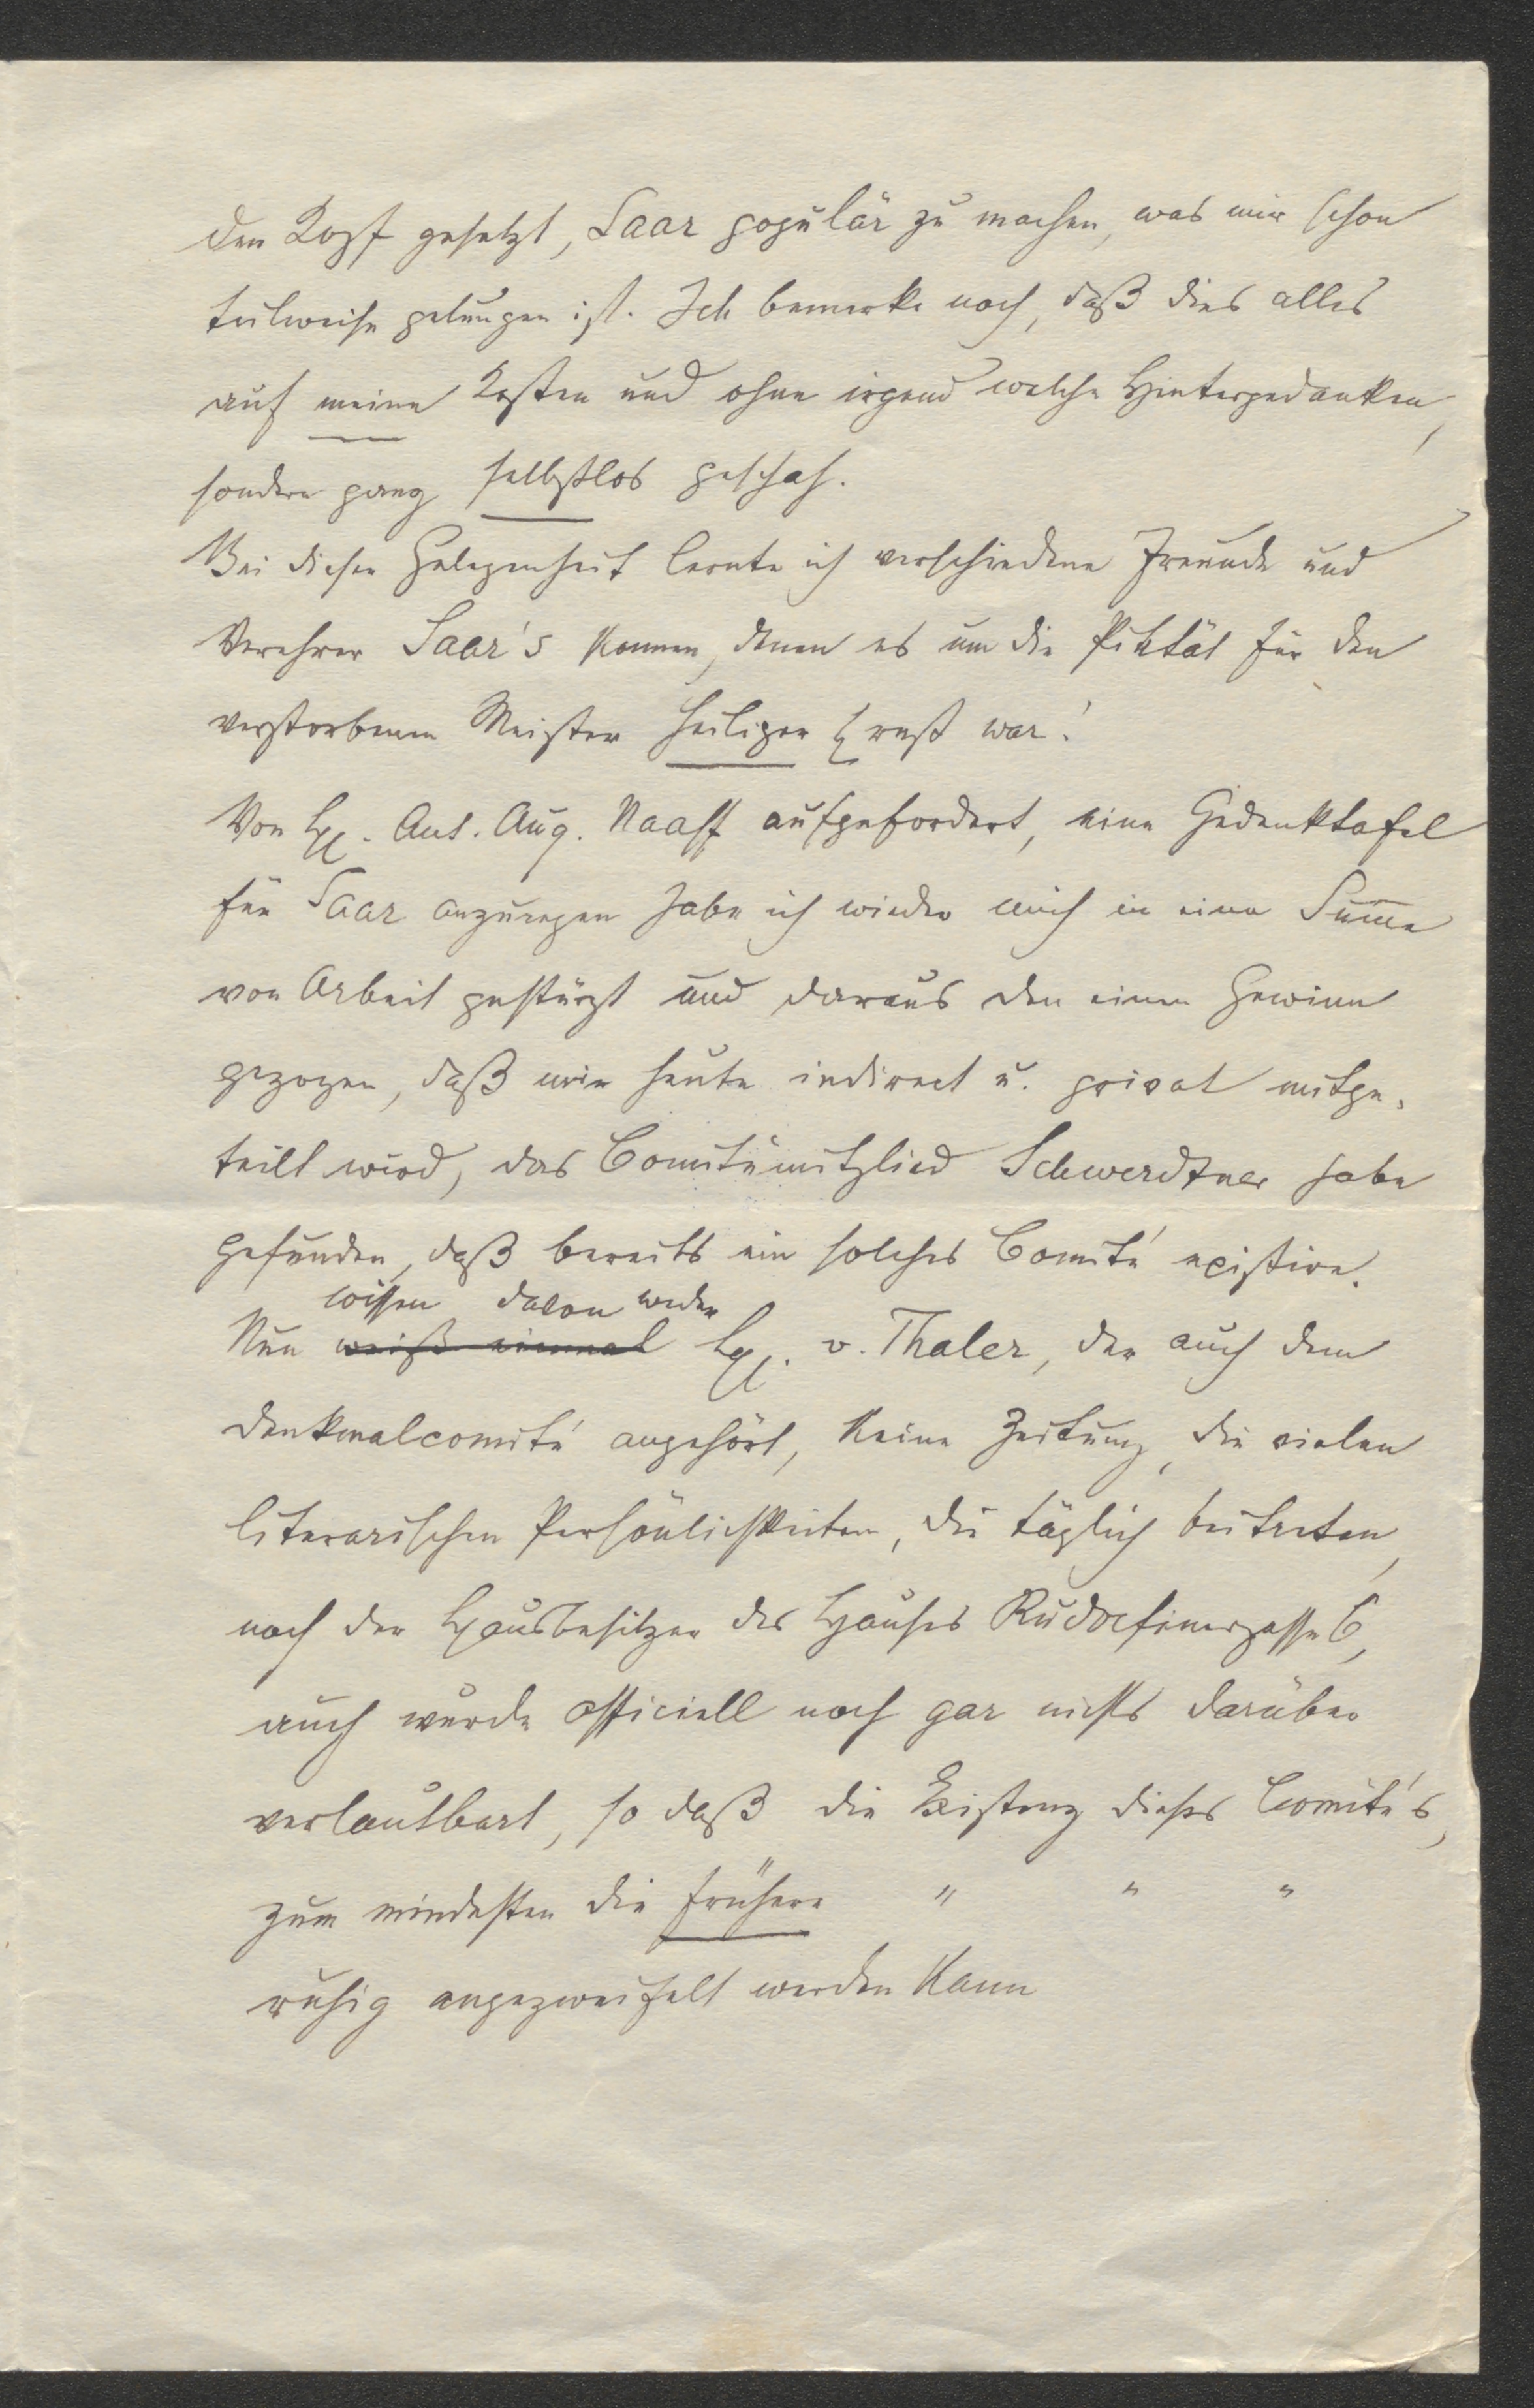 den Kopf gesetzt, Saar populär zu machen, was mir schon
teilweise gelungen ist. Ich bemerke noch, daß dies alles
auf meine Kosten und ohne irgend welche Hintergedanken,
sondern ganz selbstlos geschah.
Bei dieser Gelegenheit lernte ich verschiedene Freunde und
Verehrer Saar's kennen, denen es um die Pietät für den
verstorbenen Meister heiliger Ernst war!
Von H. Ant. Aug. Naaff aufgefordert, eine Gedenktafel
für Saar anzuregen habe ich wieder mich in eine Sum̅e
von Arbeit gestürzt und daraus den einen Gewinn
gezogen, daß mir heute indirect u. privat mitge-
teilt wird, das Comitémitglied Schwerdtner habe
gefunden, daß bereits ein solches Comité existire.
wissen davon weder
Nun weiß einmal H. v. Thaler, der auch dem
Denkmalcomité angehört, keine Zeitung, die vielen
literarischen Persönlichkeiten, die täglich beitreten,
noch der Hausbesitzer des Hauses Rudolfinergasse 6,
auch wurde officiell noch gar nichts darüber
verlautbart, so daß die Existenz dieses Comité's,
zum mindesten die frühere " " "
ruhig angezweifelt werden kann